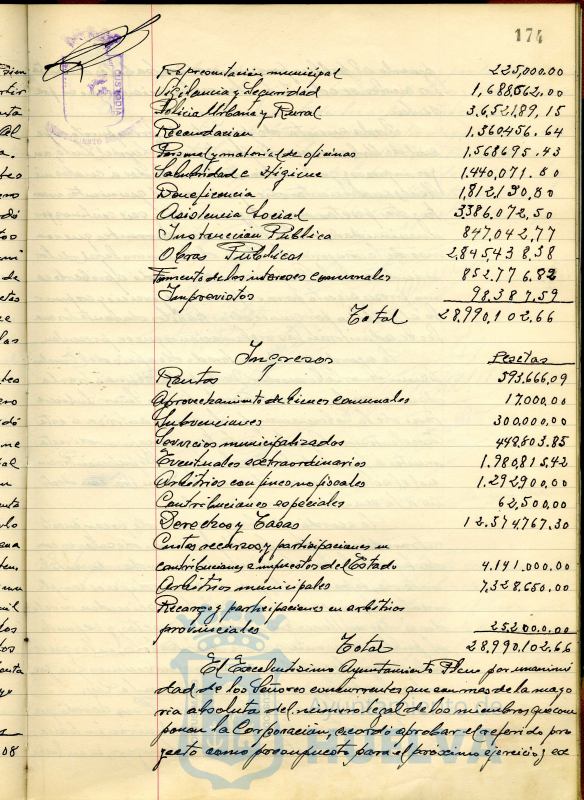 174
Representación municipal 225,000.00
Vigilancia y Seguridad 1,688,562,00
Policia Urbana y Rural 3.652,189,15
Recaudacion 1.360,456.64
Personal y material de oficinas 1.568,695.43
Salubridad e Higiene 1.440,071.80
Beneficencia 1,812,130,80
Asistencia Social 3,386,072,50
Instruccion Publica 847,042,77
Obras Públicas 2,845,438,38
Fomento de los intereses comunales 852,776,82
Imprevistos 98,387,59
Total 28,990,102.66
Ingresos Pesetas
Rentas 593,666,09
Aprovechamiento de bienes comunales 17,000,00
Subvenciones 300,000,00
Servicios municipalizados 449,803.85
Eventuales extraordinarios 1.980,815,42
Arbitrios con fines no fiscales 1.292,900,00
Contribuciones especiales 62,500,00
Derechos y Tasas 12.574,767.30
recursos y participaciones en
contribuciones e impuestos del Estado 4.141,000,00
Arbitrios municipales 7,328,650,00
Recargo y participaciones en arbitrios
provinciales 252,000,00
Total 28,990,102,66
El Excelentísimo Ayuntamiento Pleno por unanimi
dad de los Señores concurrentes que son mas de la mayo
ria absoluta del número legal de los miembros que com
ponen la Corporación, acordó aprobar el referido pro
yecto como presupuesto para el próximo ejercicio, y ex